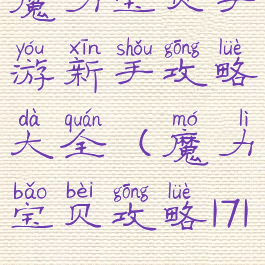 魔力宝贝手
yóu xīn shǒu gōng lüè
游新手攻略
dà quán mó lì
大全(魔力
bǎo bèi gōng lüè
宝贝攻略171